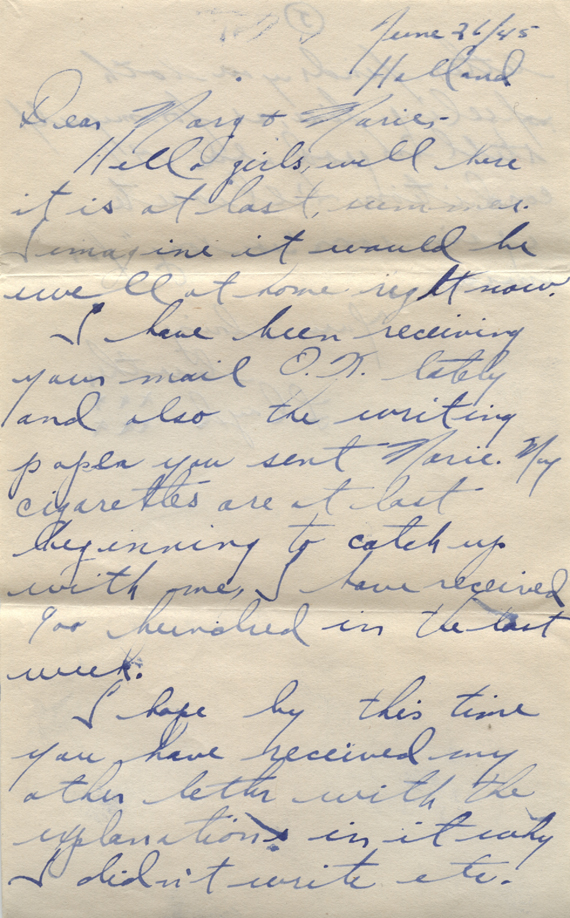 June 26/45
Holland
Dear Marg & Marie,-
Hello girls, well here
it is at last, summer.
I imagine it would be
swell at home right now.
I have been receiving
your mail O.K. lately
and also the writing
paper you sent Marie. My
cigarettes are at last
beginning to catch up
with me, I have received
900 hundred in the last
week.
I hope by this time
you have received my
other letter with the
explanations in it why
I didn't write etc.